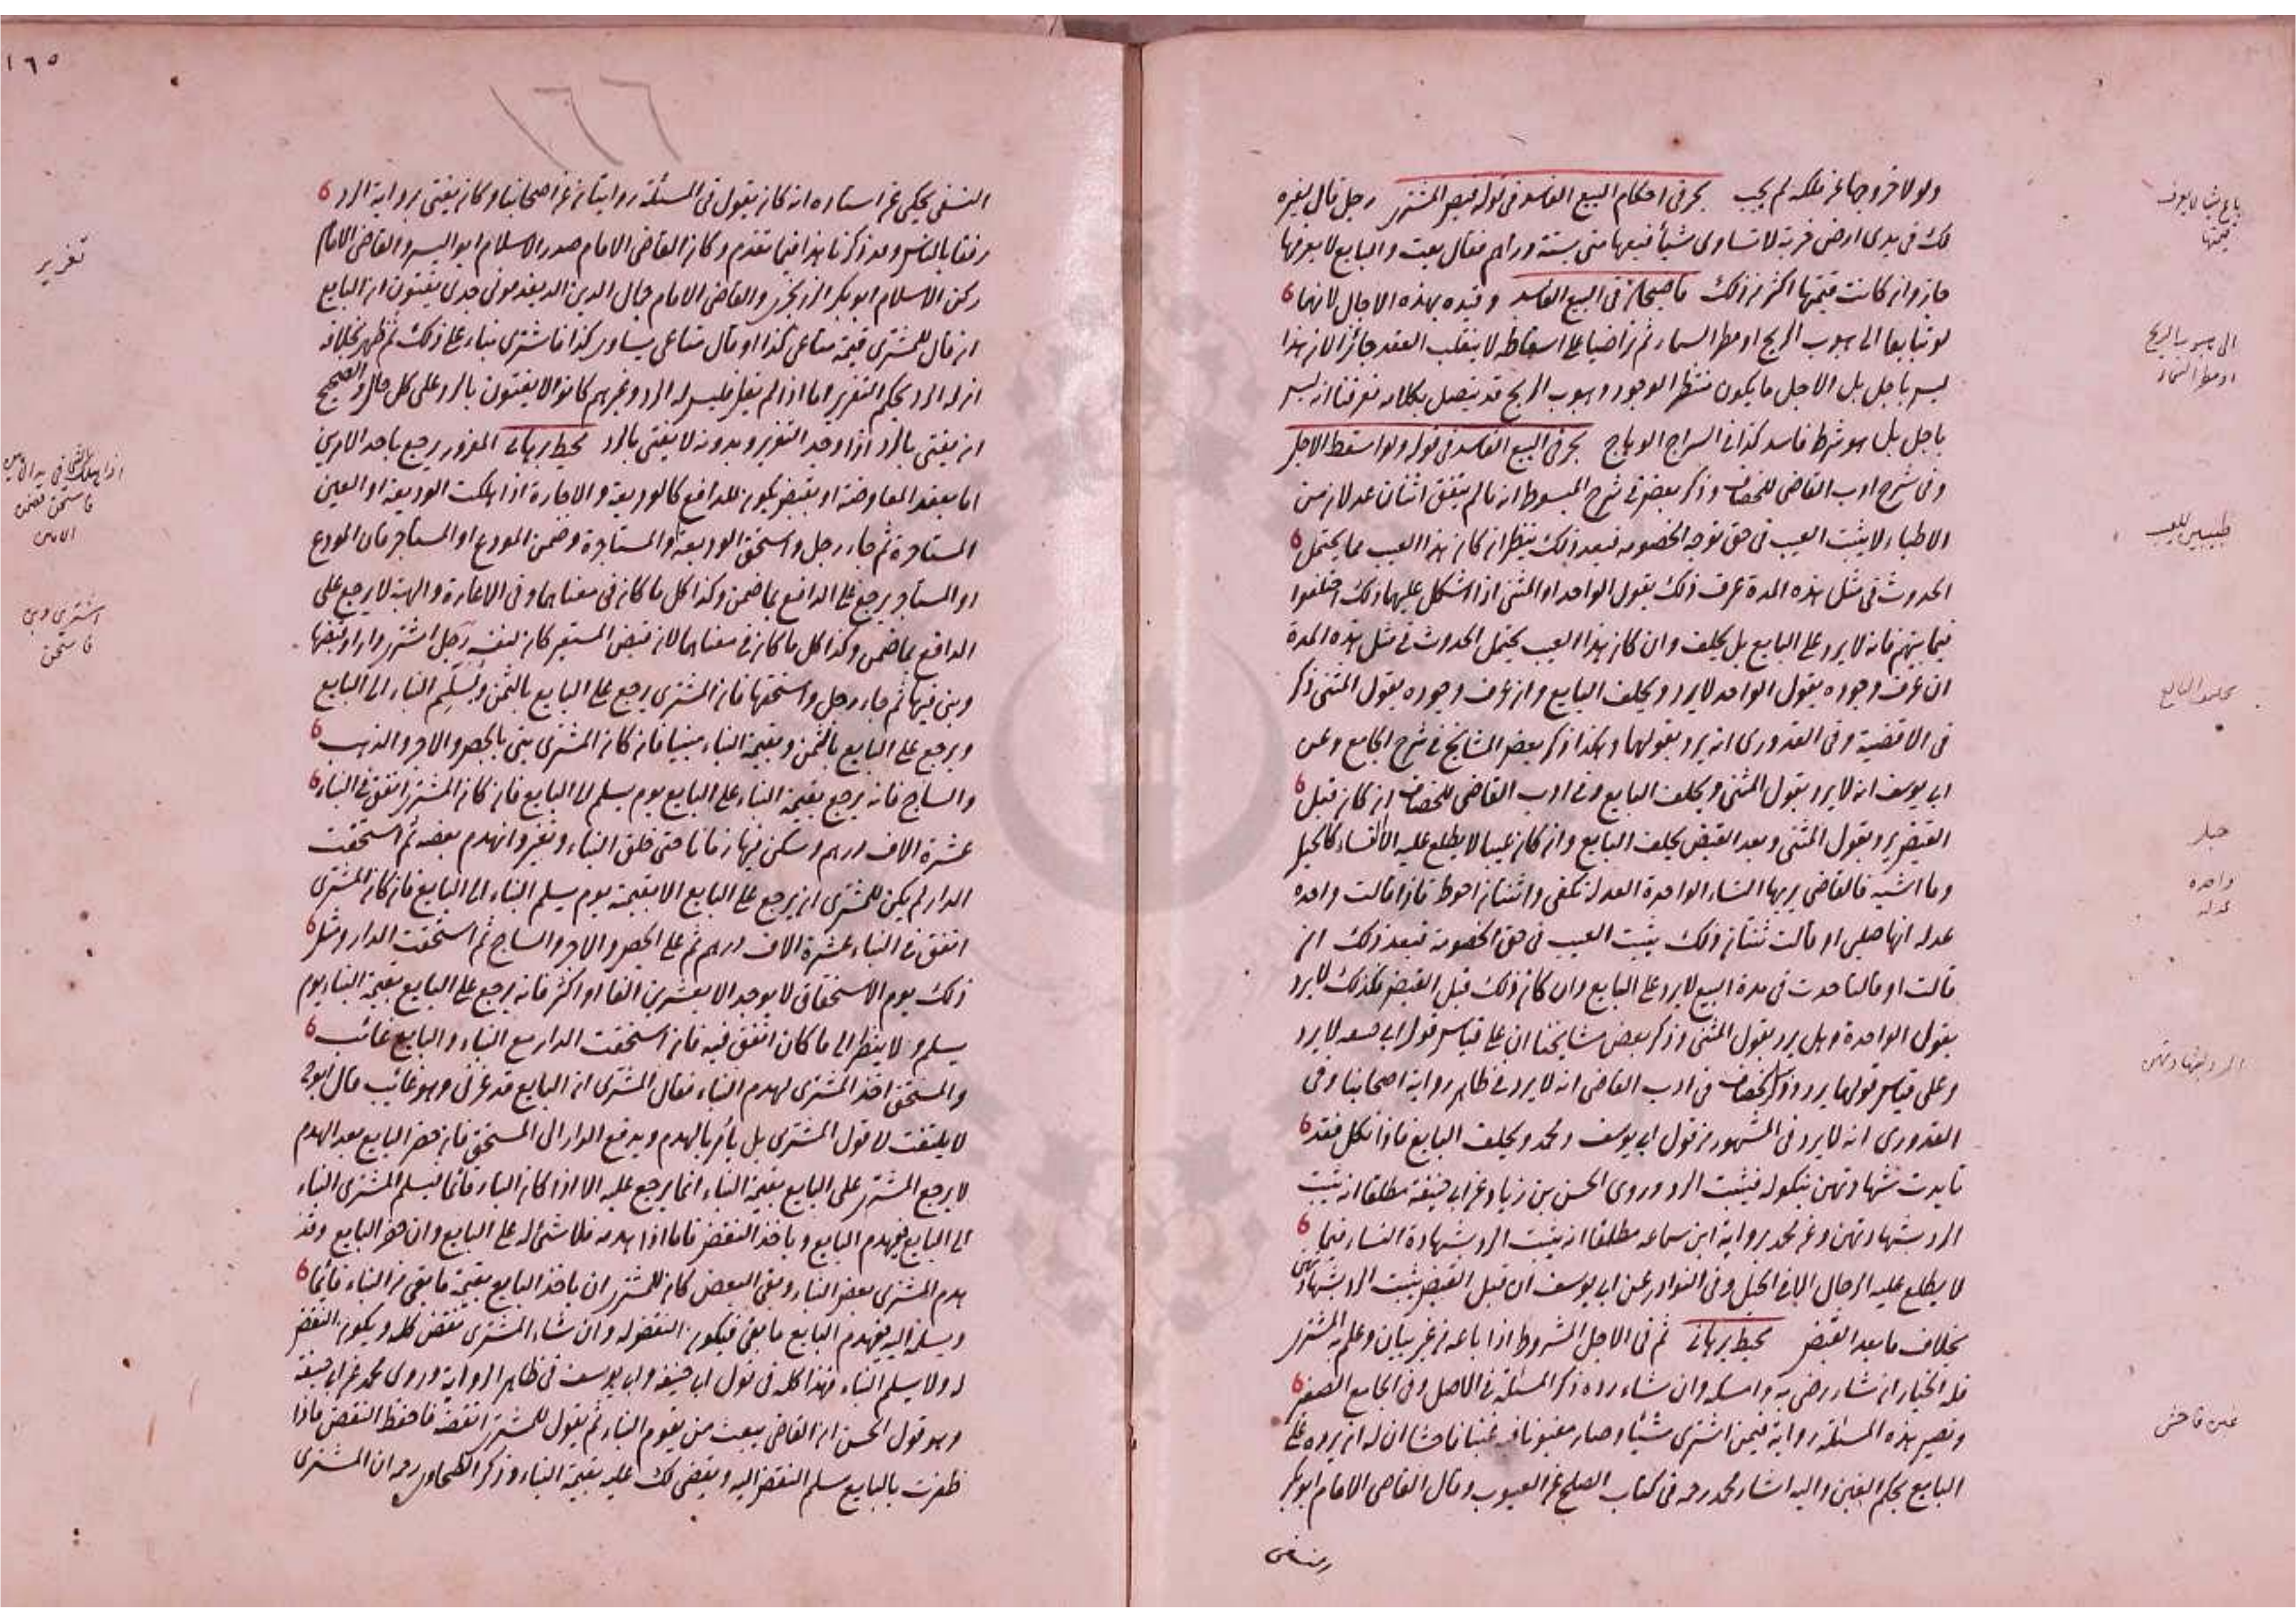 ولو لا خروجها عن ملكه لم يجب بحر فى احكام البيع الفاسد فى قوله قبض المشترى رجل قال لغيره
لك فى يدى ارض خربة لا تساوى شيئا فبعها منى بستة دراهم فقال بعت والبايع لا يعرفها
جاز وان كانت قيمتها اكثر من ذلك قاضيخان فى البيع الفاسد وقيده بهذه الاجال لانهما
لو تبايعا الى هبوب الريح او مطر السماء ثم تراضيا على اسقاطه لا ينقلب العقد جائزا لان هذا
ليس باجل بل الاجل ما يكون منتظر الوجود وهبوب الريح قد يتصل بكلامه فعرفنا انه ليس
باجل بل هو شرط فاسد كذا فى السراج الوهاج بحر فى البيع الفاسد فى قوله ولو اسقط الاجل
وفى شرح ادب القاضى للخصاف وذكر بعض فى شرح المبسوط انه ما لم يتفق اثنان عدلان من
الاطباء لا يثبت العيب فى حق توجه الخصومه فبعد ذلك ينظر ان كان هذا العيب مما يحتمل
الحدوث فى مثل هذه المدة عرف ذلك بقول الواحد او المثنى اذا اشكل عليهما ذلك اختلفوا
فيما بينهم فانه لا يرد على البايع بل يحلف وان كان هذا العيب يحتمل الحدوث فى مثل هذه المدة
ان عرف وجوده بقول الواحد لا يرد ويحلف البايع وان عرف وجوده بقول المثنى ذكر
فى الاقضية وفى القدورى انه يرد بقولهما وهكذا ذكر بعض المشايخ فى شرح الجامع وعن
ابى يوسف انه لا يرد بقول المثنى ويحلف البايع وفى ادب القاضى للخصاف ان كان قبل
القبض يرد بقول المثنى وبعد القبض يحلف البايع وان كان عيبا لا يطلع عليه الا النساء كالحبل
وما اشبه فالقاضى يريها النساء الواحدة العدلة تكفى واثنتان احوط فاذا قالت واحدة
عدلة انها حبلى او قالت ثنتان ذلك يثبت العيب فى حق الخصومة فبعد ذلك ان
قالت او قالتا حدث فى مدة البيع لا يرد على البايع وان كان ذلك قبل القبض فكذلك لا يرد
بقول الواحدة وهل يرد بقول المثنى وذكر بعض مشايخنا ان على قياس قول ابى حنيفه لا يرد
وعلى قياس قولهما يرد وذكر الخصاف فى ادب القاضى انه لا يرد فى ظاهر رواية اصحابنا وفى
القدورى انه لا يرد فى المشهور من قول ابى يوسف ومحمد ويحلف البايع فاذا نكل فقد
تأيدت شهادتهن بنكوله فيثبت الرد وروى الحسن بن زياد عن ابى حنيفة مطلقا انه يثبت
الرد بشهادتهن وعن محمد برواية ابن سماعه مطلقا انه يثبت الرد بشهادة النساء فيما
لا يطلع عليه الرجال الا فى الحبل وفى النوادر عن ابى يوسف ان قبل القبض يثبت الرد بشهادتهن
بخلاف ما بعد القبض محيط برهانى ثم فى الاجل المشروط اذا باعه من غير بيان وعلم به المشترى
فله الخيار ان شاء رضى به وامسكه وان شاء رده ذكر المسئلة فى الاصل وفى الجامع الصغير
وتصير هذه المسئلة رواية فيمن اشترى شيئا وصار مغبونا فيه غبنا فاحشا ان له ان يرده على
البايع بحكم الغبن واليه اشار محمد رحمه فى كتاب الصلح عن العيوب وقال القاضى الامام ابو بكر
باع شيئا لا يعرف
قيمتها
الى هبوب الريح
او مطر السماء
طبيبين للعيب
يحلف البايع
حبل
واحدة
عدلة
الرد بشهادتهن
غبن فاحش
١٦٥
١٦٦
النسفى يحكى عن استاده انه كان يقول فى المسئلة روايتان عن اصحابنا وكان يفتى برواية الرد
رفقا بالناس وقد ذكرنا هذا فيما تقدم وكان القاضى الامام صدر الاسلام ابو اليسر والقاضى الامام
ركن الاسلام ابو بكر الزرنجرى والقاضى الامام جمال الدين الديغدمونى جدى يفتون ان البايع
ان قال للمشترى قيمة متاعى كذا او قال متاعى يساوى كذا فاشترى بناء على ذلك ثم ظهر بخلافه
ان له الرد بحكم التغرير اما اذا لم يقل فليس له الرد وغيرهم كانوا لا يفتون بالرد على كل حال والصحيح
ان يفتى بالرد اذا وجد التغرير وبدونه لا يفتى بالرد محيط برهانى المغرور يرجع باحد الامرين
اما بعقد المعاوضة او بقبض يكون للدافع كالوديعة والاجارة اذا هلكت الوديعة او العين
المستأجرة ثم جاء رجل واستحق الوديعة والمستأجرة وضمن المودع او المستأجر فان المودع
او المستأجر يرجع على الدافع بما ضمن وكذا كل ما كان فى معناهما وفى الاعارة والهبة لا يرجع على
الدافع بما ضمن وكذا كل ما كان فى معناهما لان قبض المستعير كان لنفسه رجل اشترى دارا وقبضها
وبنى فيها ثم جاء رجل واستحقها فان المشترى يرجع على البايع بالثمن ويسلم البناء الى البايع
ويرجع على البايع بالثمن وبقيمة البناء مبنيا فان كان المشترى بنى بالجص والاجر والذهب
والساج فانه يرجع بقيمة البناء على البايع يوم يسلم الى البايع فان كان المشترى انفق فى البناء
عشرة الاف درهم وسكن فيها زمانا حتى خلق البناء وتغير وانهدم بعضه ثم استحقت
الدار لم يكن للمشترى ان يرجع على البايع الا بقيمته يوم يسلم البناء الى البايع فان كان المشترى
انفق فى البناء عشرة الاف درهم ثم على الجص والاجر والساج ثم استحقت الدار ومثل
ذلك يوم الاستحقاق لا يوجد الا بعشرين الفا او اكثر فانه يرجع على البايع بقيمة البناء يوم
يسلم ولا ينظر الى ما كان انفق فيه فان استحقت الدار مع البناء والبايع غائب
والمستحق اخذ المشترى لهدم البناء فقال المشترى ان البايع قد غرنى وهو غائب قال ابو ح
لا يلتفت لا قول المشترى بل يأمر بالهدم ويدفع الدار الى المستحق فان حضر البايع بعد الهدم
لا يرجع المشترى على البايع بقيمة البناء انما يرجع عليه الا اذا كان البناء قائما فيسلم المشترى البناء
الى البايع فيهدم البايع ويأخذ النقض فاما اذا هدمه فلا شئ له على البايع وان حضر البايع وقد
هدم المشترى بعض البناء وبقى البعض كان للمشترى ان يأخذ البايع بقيمة ما بقى من البناء قائما
ويسلمه اليه فيهدم البايع ما بقى فيكون النقض له وان شاء المشترى نقض كله ويكون النقض
له ولا يسلم البناء فهذا كله فى قول ابى حنيفة وابى يوسف فى ظاهر الرواية وروى محمد عن ابى حنيفة
وهو قول الحسن ان القاضى يبعث من يقوم البناء ثم يقول للمشترى انقضه فاحفظ النقض فاذا
ظفرت بالبايع سلم النقض اليه ويقضى لك عليه بقيمة البناء وذكر الطحاوى رحمه ان المشترى
تغرير
فاستحق يضمن
اشترى وبنى
فاستحق